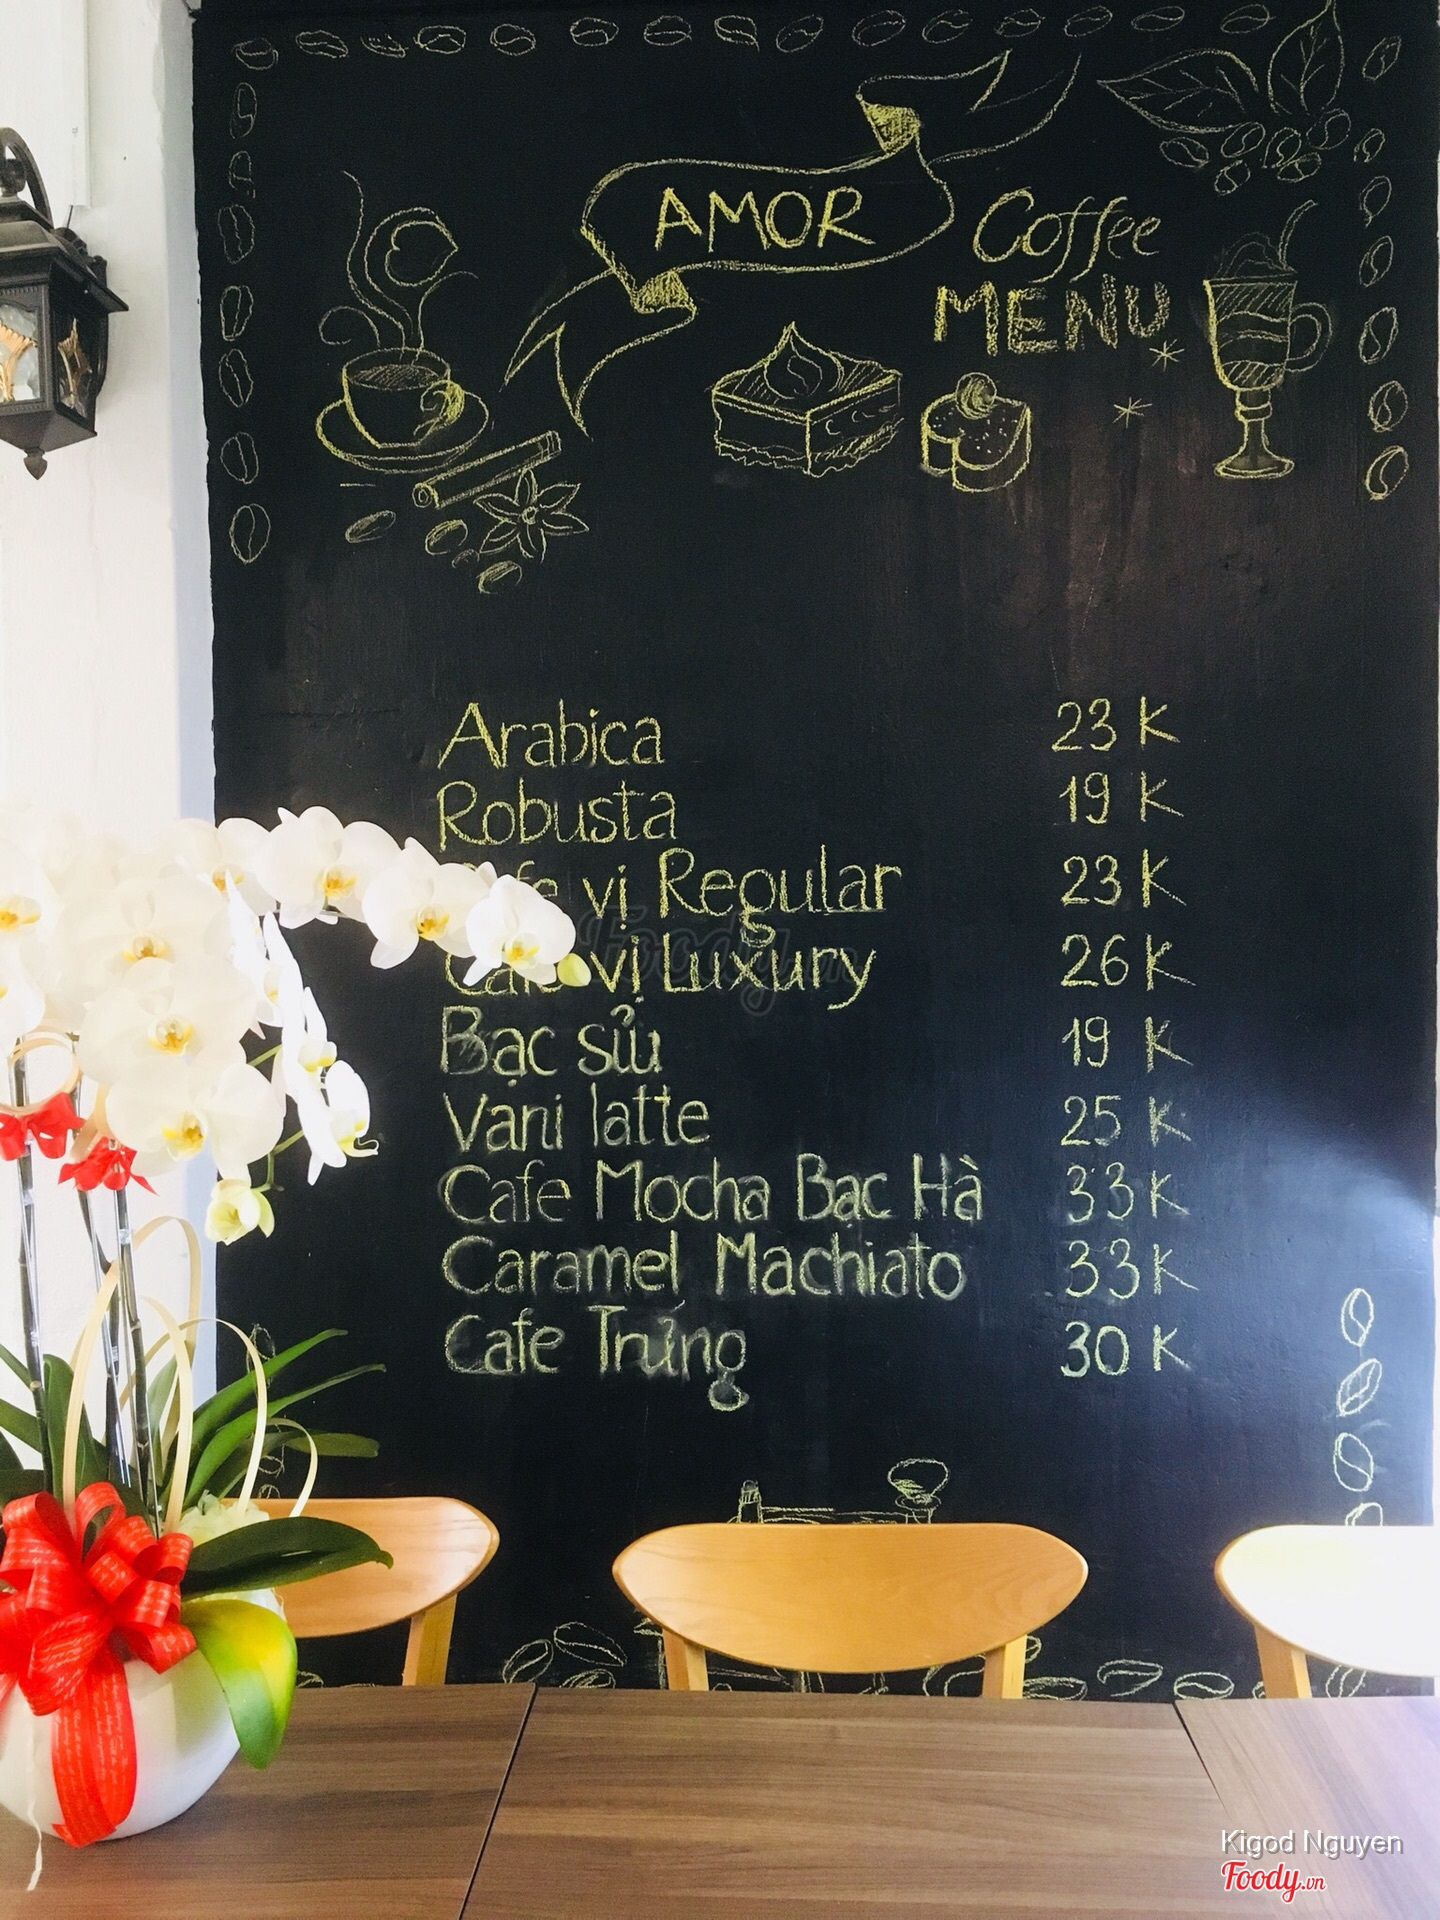 AMOR Coffee
MENU
Arabica 23 K
Robusta 19 K
vị Regular 23 K
Cafe vị Luxury 26 K
Bạc sửu 19 K
Vani latte 25 K
Cafe Mocha Bạc Hà 33 K
Caramel Machiato 33 K
Cafe Trứng 30 K
Foody.vn
Kigod Nguyen
Foody.vn